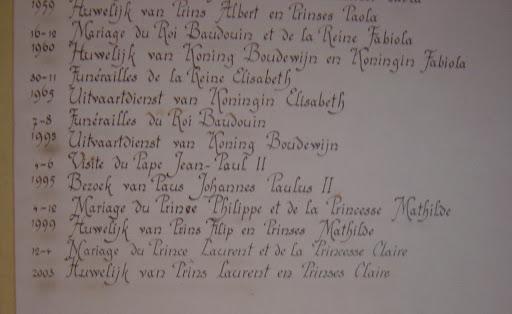 1959 Huwelijk van Prins Albert en Prinses Paola
16-12 Mariage du Roi Baudouin et de la Reine Fabiola
1960 Huwelijk van Koning Boudewijn en Koningin Fabiola
30-11 Funérailles de la Reine Elisabeth
1965 Uitvaartdienst van Koningin Elisabeth
7-8 Funérailles du Roi Baudouin
1993 Uitvaartdienst van Koning Boudewijn
4-6 Visite du Pape Jean-Paul II
1995 Bezoek van Paus Johannes Paulus II
4-12 Mariage du Prince Philippe et de la Princesse Mathilde
1999 Huwelijk van Prins Filip en Prinses Mathilde
12-4 Mariage du Prince Laurent et de la Princesse Claire
2003 Huwelijk van Prins Laurent en Prinses Claire